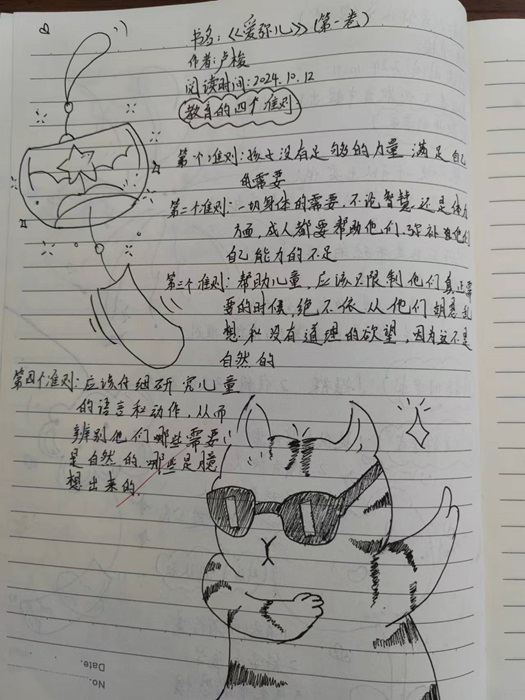 书名:《爱弥儿》(第一卷)
作者:卢梭
阅读时间:2024.10.12
教育的四个准则
第一个准则:孩子没有足够的力量满足自己
的需要
第二个准则:一切身体的需要,不论智慧还是体力
方面,成人都要帮助他们,弥补他们
自己能力的不足
第三个准则:帮助儿童,应该只限制他们真正需
要的时候,绝不依从他们胡思乱
想和没有道理的欲望,因为这不是
自然的
第四个准则:应该仔细研究儿童
的语言和动作,从而
辨别他们哪些需要
是自然的哪些是臆
想出来的.
No.
Date.